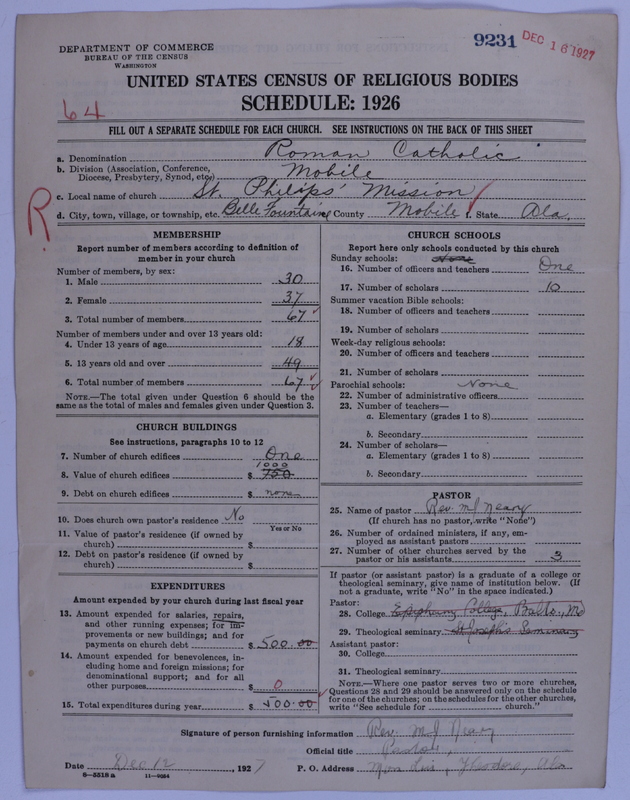 9231 DEC 16 1927
DEPARTMENT OF COMMERCE
BUREAU OF THE CENSUS
WASHINGTON
UNITED STATES CENSUS OF RELIGIOUS BODIES
SCHEDULE: 1926
64
FILL OUT A SEPARATE SCHEDULE FOR EACH CHURCH. SEE INSTRUCTIONS ON THE BACK OF THIS SHEET
a. Denomination Roman Catholic
b. Division (Association, Conference, Diocese, Presbytery, Synod, etc.) Mobile
c. Local name of church St. Philips' Mission
R
d. City, town, village, or township, etc. Belle Fountaine County Mobile f. State Ala.
MEMBERSHIP
Report number of members according to definition of
member in your church
Number of members, by sex:
1. Male 30
2. Female 37
3. Total number of members 67
Number of members under and over 13 years old:
4. Under 13 years of age 18
5. 13 years old and over 49
6. Total number of members 67
NOTE.—The total given under Question 6 should be
same as the total of males and females given under Question 3.
CHURCH BUILDINGS
See instructions, paragraphs 10 to 12
7. Number of church edifices One
1000
8. Value of church edifices $ 750
9. Debt on church edifices $ none
10. Does church own pastor's residence No
Yes or No
11. Value of pastor's residence (if owned by
church) $
12. Debt on pastor's residence (if owned by
church) $
EXPENDITURES
Amount expended by your church during last fiscal year
13. Amount expended for salaries, repairs,
and other running expenses; for im-
provements or new buildings; and for
payments on church debt $ 500.00
14. Amount expended for benevolences, in-
cluding home and foreign missions; for
denominational support; and for all
other purposes $ 0
15. Total expenditures during year $ 500.00
CHURCH SCHOOLS
Report here only schools conducted by this church
Sunday schools: None
16. Number of officers and teachers One
17. Number of scholars 10
Summer vacation Bible schools:
18. Number of officers and teachers
19. Number of scholars
Week-day religious schools:
20. Number of officers and teachers
21. Number of scholars
Parochial schools: None
22. Number of administrative officers
23. Number of teachers—
a. Elementary (grades 1 to 8)
b. Secondary
24. Number of scholars—
a. Elementary (grades 1 to 8)
b. Secondary
PASTOR
25. Name of pastor Rev. M J Neary
(If church has no pastor, write "None")
26. Number of ordained ministers, if any, em-
ployed as assistant pastors
27. Number of other churches served by the
pastor or his assistants 3
If pastor (or assistant pastor) is a graduate of a college or
theological seminary, give name of institution below. (If
not a graduate, write "No" in the space indicated.)
Pastor:
28. College Epiphany College, Balto., Md
29. Theological seminary St Joseph's Seminary
Assistant pastor:
30. College
31. Theological seminary
NOTE.—Where one pastor serves two or more churches,
Questions 28 and 29 should be answered only on the schedule
for one of the churches; on the schedules for the other churches,
write "See schedule for church."
Signature of person furnishing information Rev. M J Neary
Official title Pastor,
Date Dec 12, 1927 P. O. Address Mon Luis, Theodore, Ala
6—5518a 11—9064